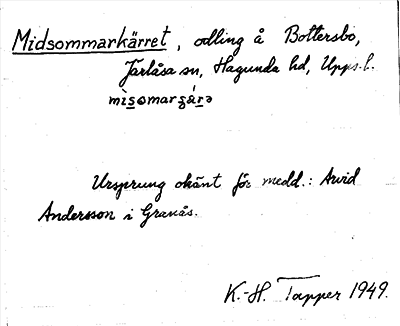 Midsommarkärret, odling å Bottersbo,
Järlåsa sn, Hagunda hd, Upps. l.
mìsomarɕä́rə
Ursprung okänt för medd.: Arvid
Andersson i Granås.
K.-H. Tapper 1949.